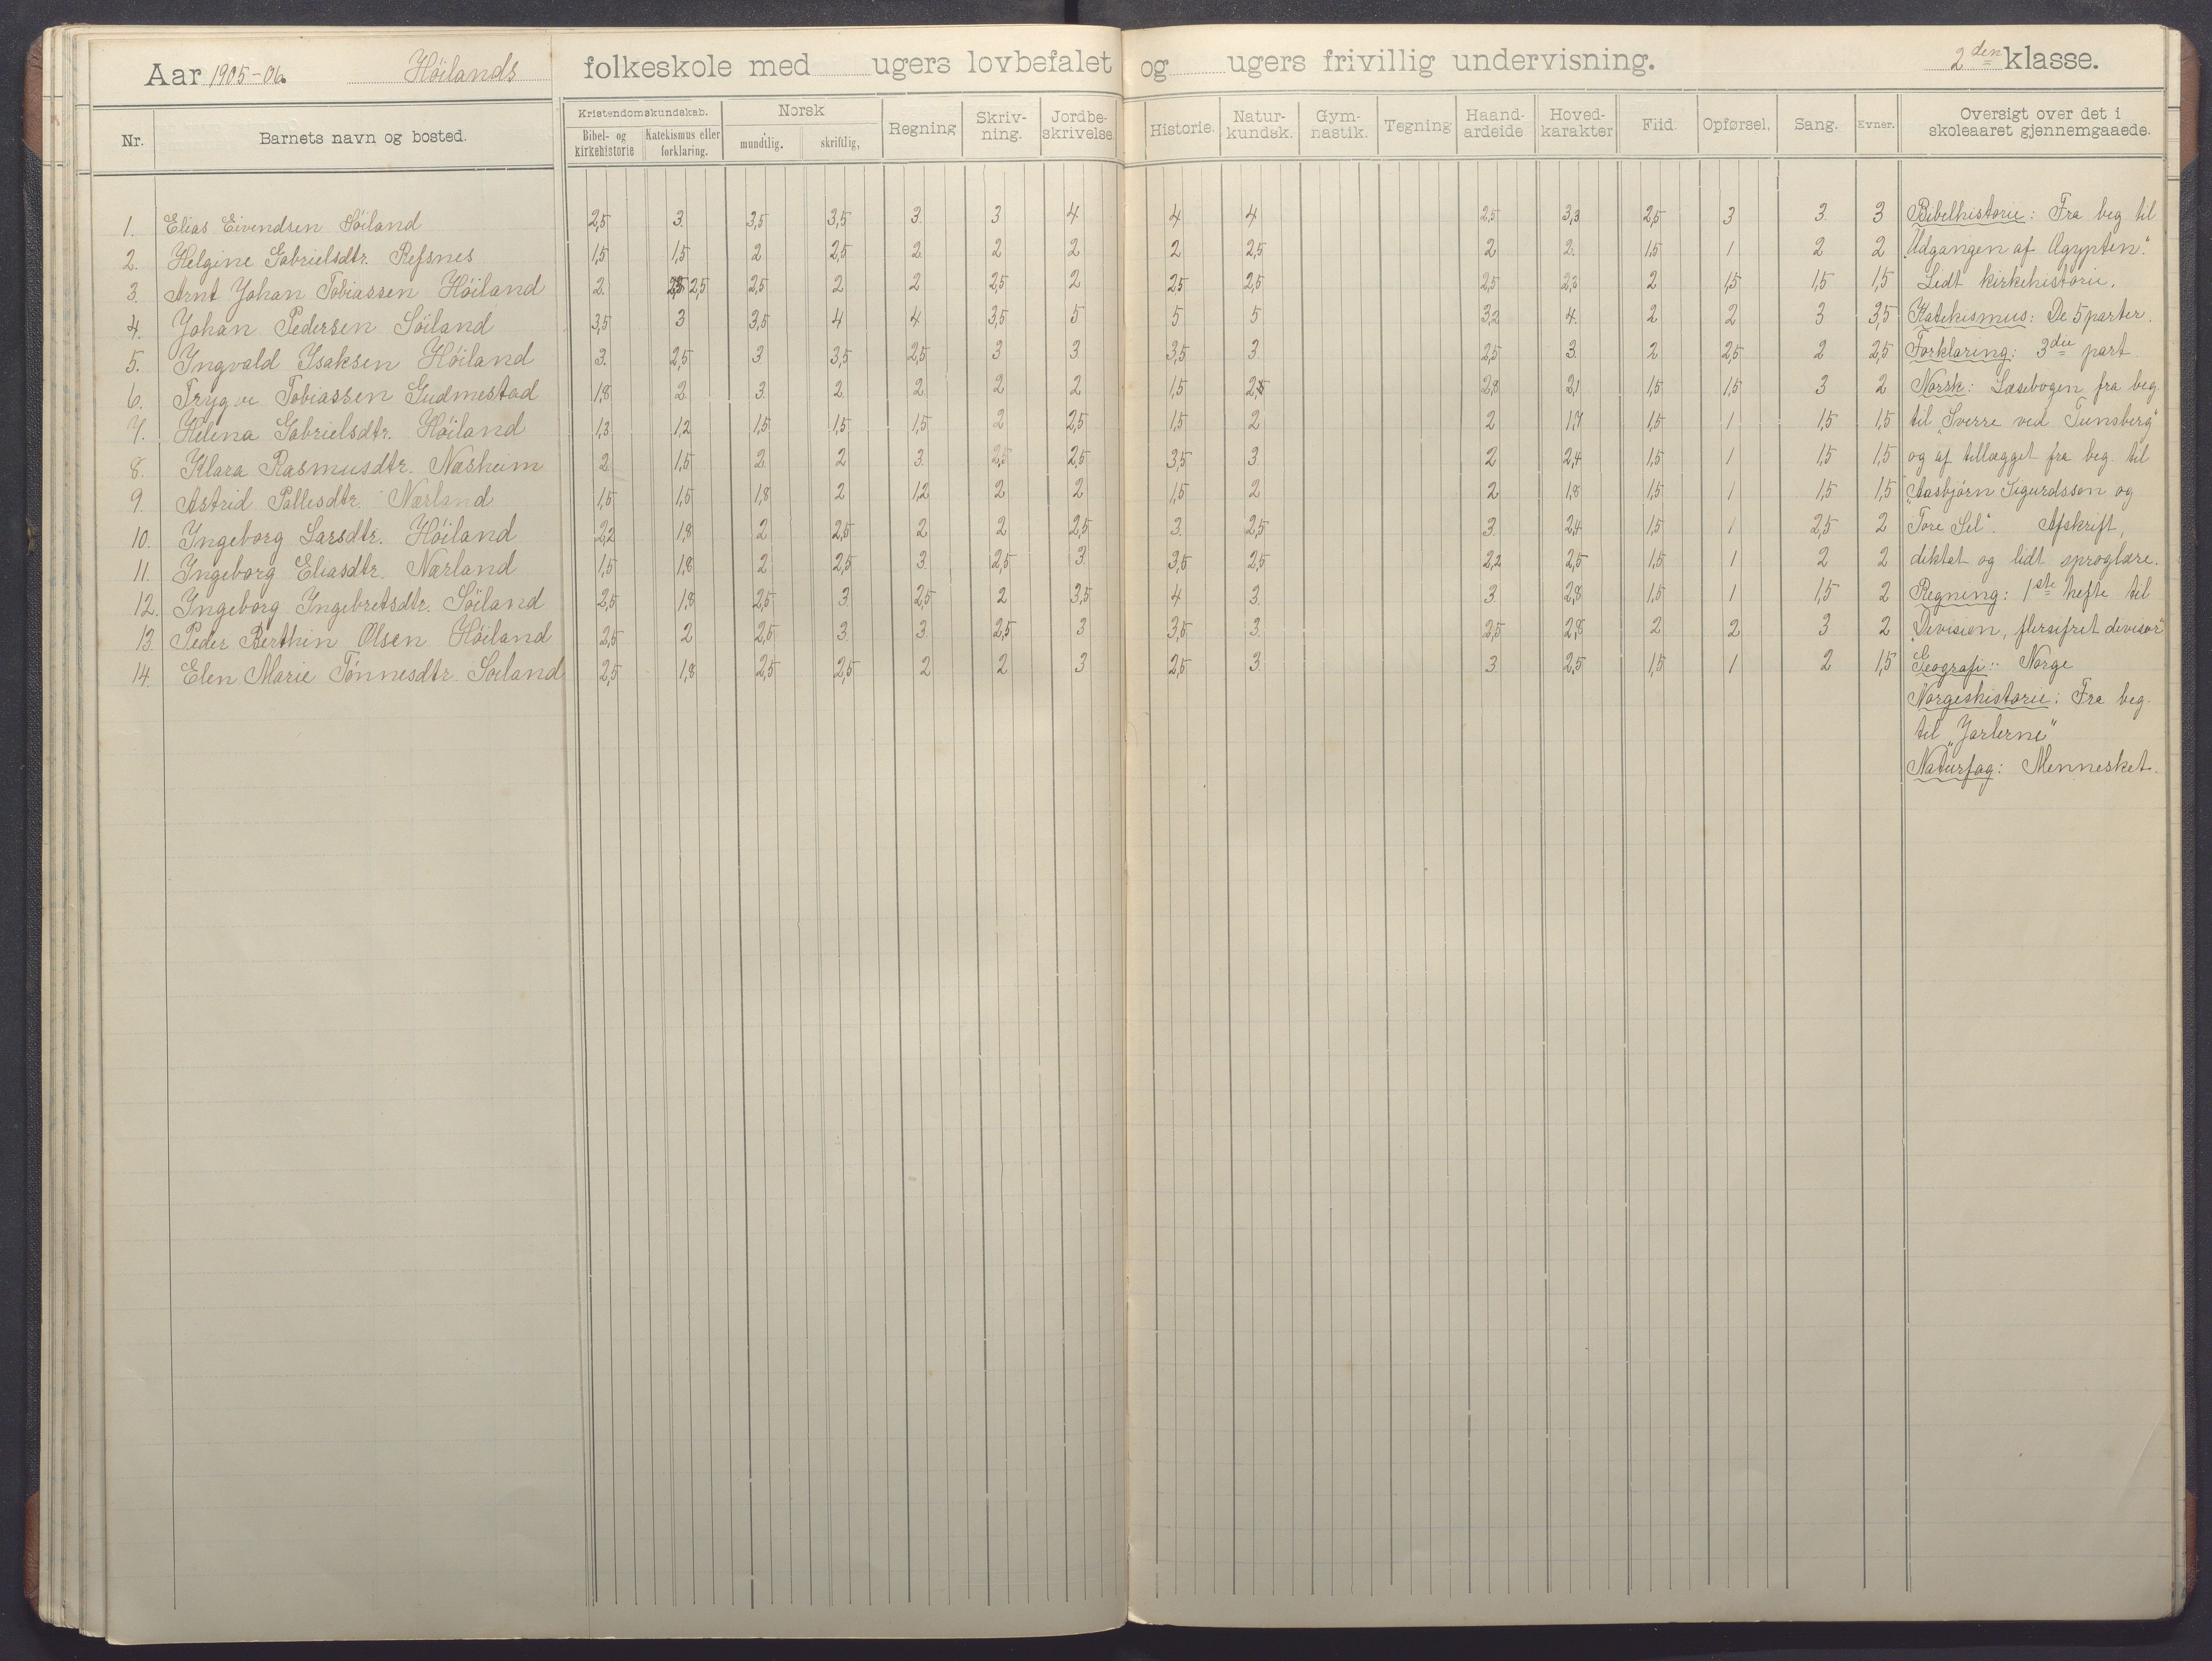 Aar 1905-06. Høilands folkeskole med ugers lovbefalet og ugers frivillig undervisning. 2den klasse.
Nr. Barnets navn og bosted. Kristendomskundskab. Bibel- og kirkehistorie Katekismus eller forklaring. Norsk mundtlig. skriftlig, Regning Skriv-ning. Jordbe-skrivelse Historie. Natur-kundsk. Gym-nastik. Tegning Haand-ardeide Hoved-karakter Flid. Opførsel. Sang. Evner. Oversigt over det i skoleaaret gjennemgaaede.
1. Elias Eivendsen Söiland 2,5 3. 3,5 3,5 3. 3 4 4 4 2,5 3,3 2,5 3 3. 3 Bibelhistorie: Fra beg til
2. Helgine Gabrielsdtr. Refsnes 1,5 1,5 2 2,5 2. 2 2 2 2,5 2 2. 1,5 1 2 2 „Udgangen af Ægypten".
3. Arnt Johan Tobiassen Höiland 2. 2,5 2,5 2 2 2,5 2 2,5 2,5 2,5 2,3 2 1,5 1,5 1,5 Lidt kirkehistorie.
4. Johan Pedersen Söiland 3,5 3 3,5 4 4 3,5 5 5 5 3,2 4. 2 2 3 3,5 Katekismus: De 5 parter.
5. Ingvald Isaksen Höiland 3. 2,5 3 3,5 2,5 3 3 3,5 3 2,5 3. 2 2,5 2 2,5 Forklaring: 3die part
6. Trygve Tobiassen Gudmestad 1,8 2. 3. 2. 2. 2 2 1,5 2,8 2,1 1,5 1,5 3 2 Norsk: Læsebogen fra beg.
7. Helena Gabrielsdtr. Höiland 1,3 1,2 1,5 1,5 1,5 2 2,5 1,5 2 2 1,7 1,5 1 1,5 1,5 til „Sverre ved Tunsberg"
8. Klara Rasmusdtr. Nærheim 2. 1,5 2. 2 3. 2,5 2,5 3,5 3. 2 2,4 1,5 1 1,5 1,5 og af tillægget fra beg. til
9. Astrid Pallesdtr. Nærland 1,5 1,5 1,8 2 1,2 2 2 1,5 2 2 1,8 1,5 1 1,5 1,5 „Aasbjörn Sigurdsson og
10. Ingeborg Larsdtr. Höiland 2,2 1,8 2 2,5 2 2 2,5 3. 2,5 3. 2,4 1,5 1 2,5 2 Tore Sel". Afskrift,
11. Ingeborg Eliasdtr. Nærland 1,5 1,8 2 2,5 3. 2,5 3. 3,5 2,5 2,2 2,5 1,5 1 2 2 diktat og lidt sproglære.
12. Ingeborg Ingebretsdtr. Söiland 2,5 1,8 2,5 3. 2,5 2 3,5 4 3. 3. 2,8 1,5 1 1,5 2 Regning: 1ste hefte til
13. Peder Berthin Olsen Höiland 2,5 2 2,5 3. 3. 2,5 3 3,5 3. 2,5 2,8 2 2 3 2 „Division, flersifret divisor"
14. Elen Marie Tönnesdtr. Soiland 2,5 1,8 2,5 2,5 2 2 3 2,5 3 3 2,5 1,5 1 2 1,5 Geografi: Norge
Norgeshistorie: Fra beg.
til „Jarlerne"
Naturfag: Mennesket.